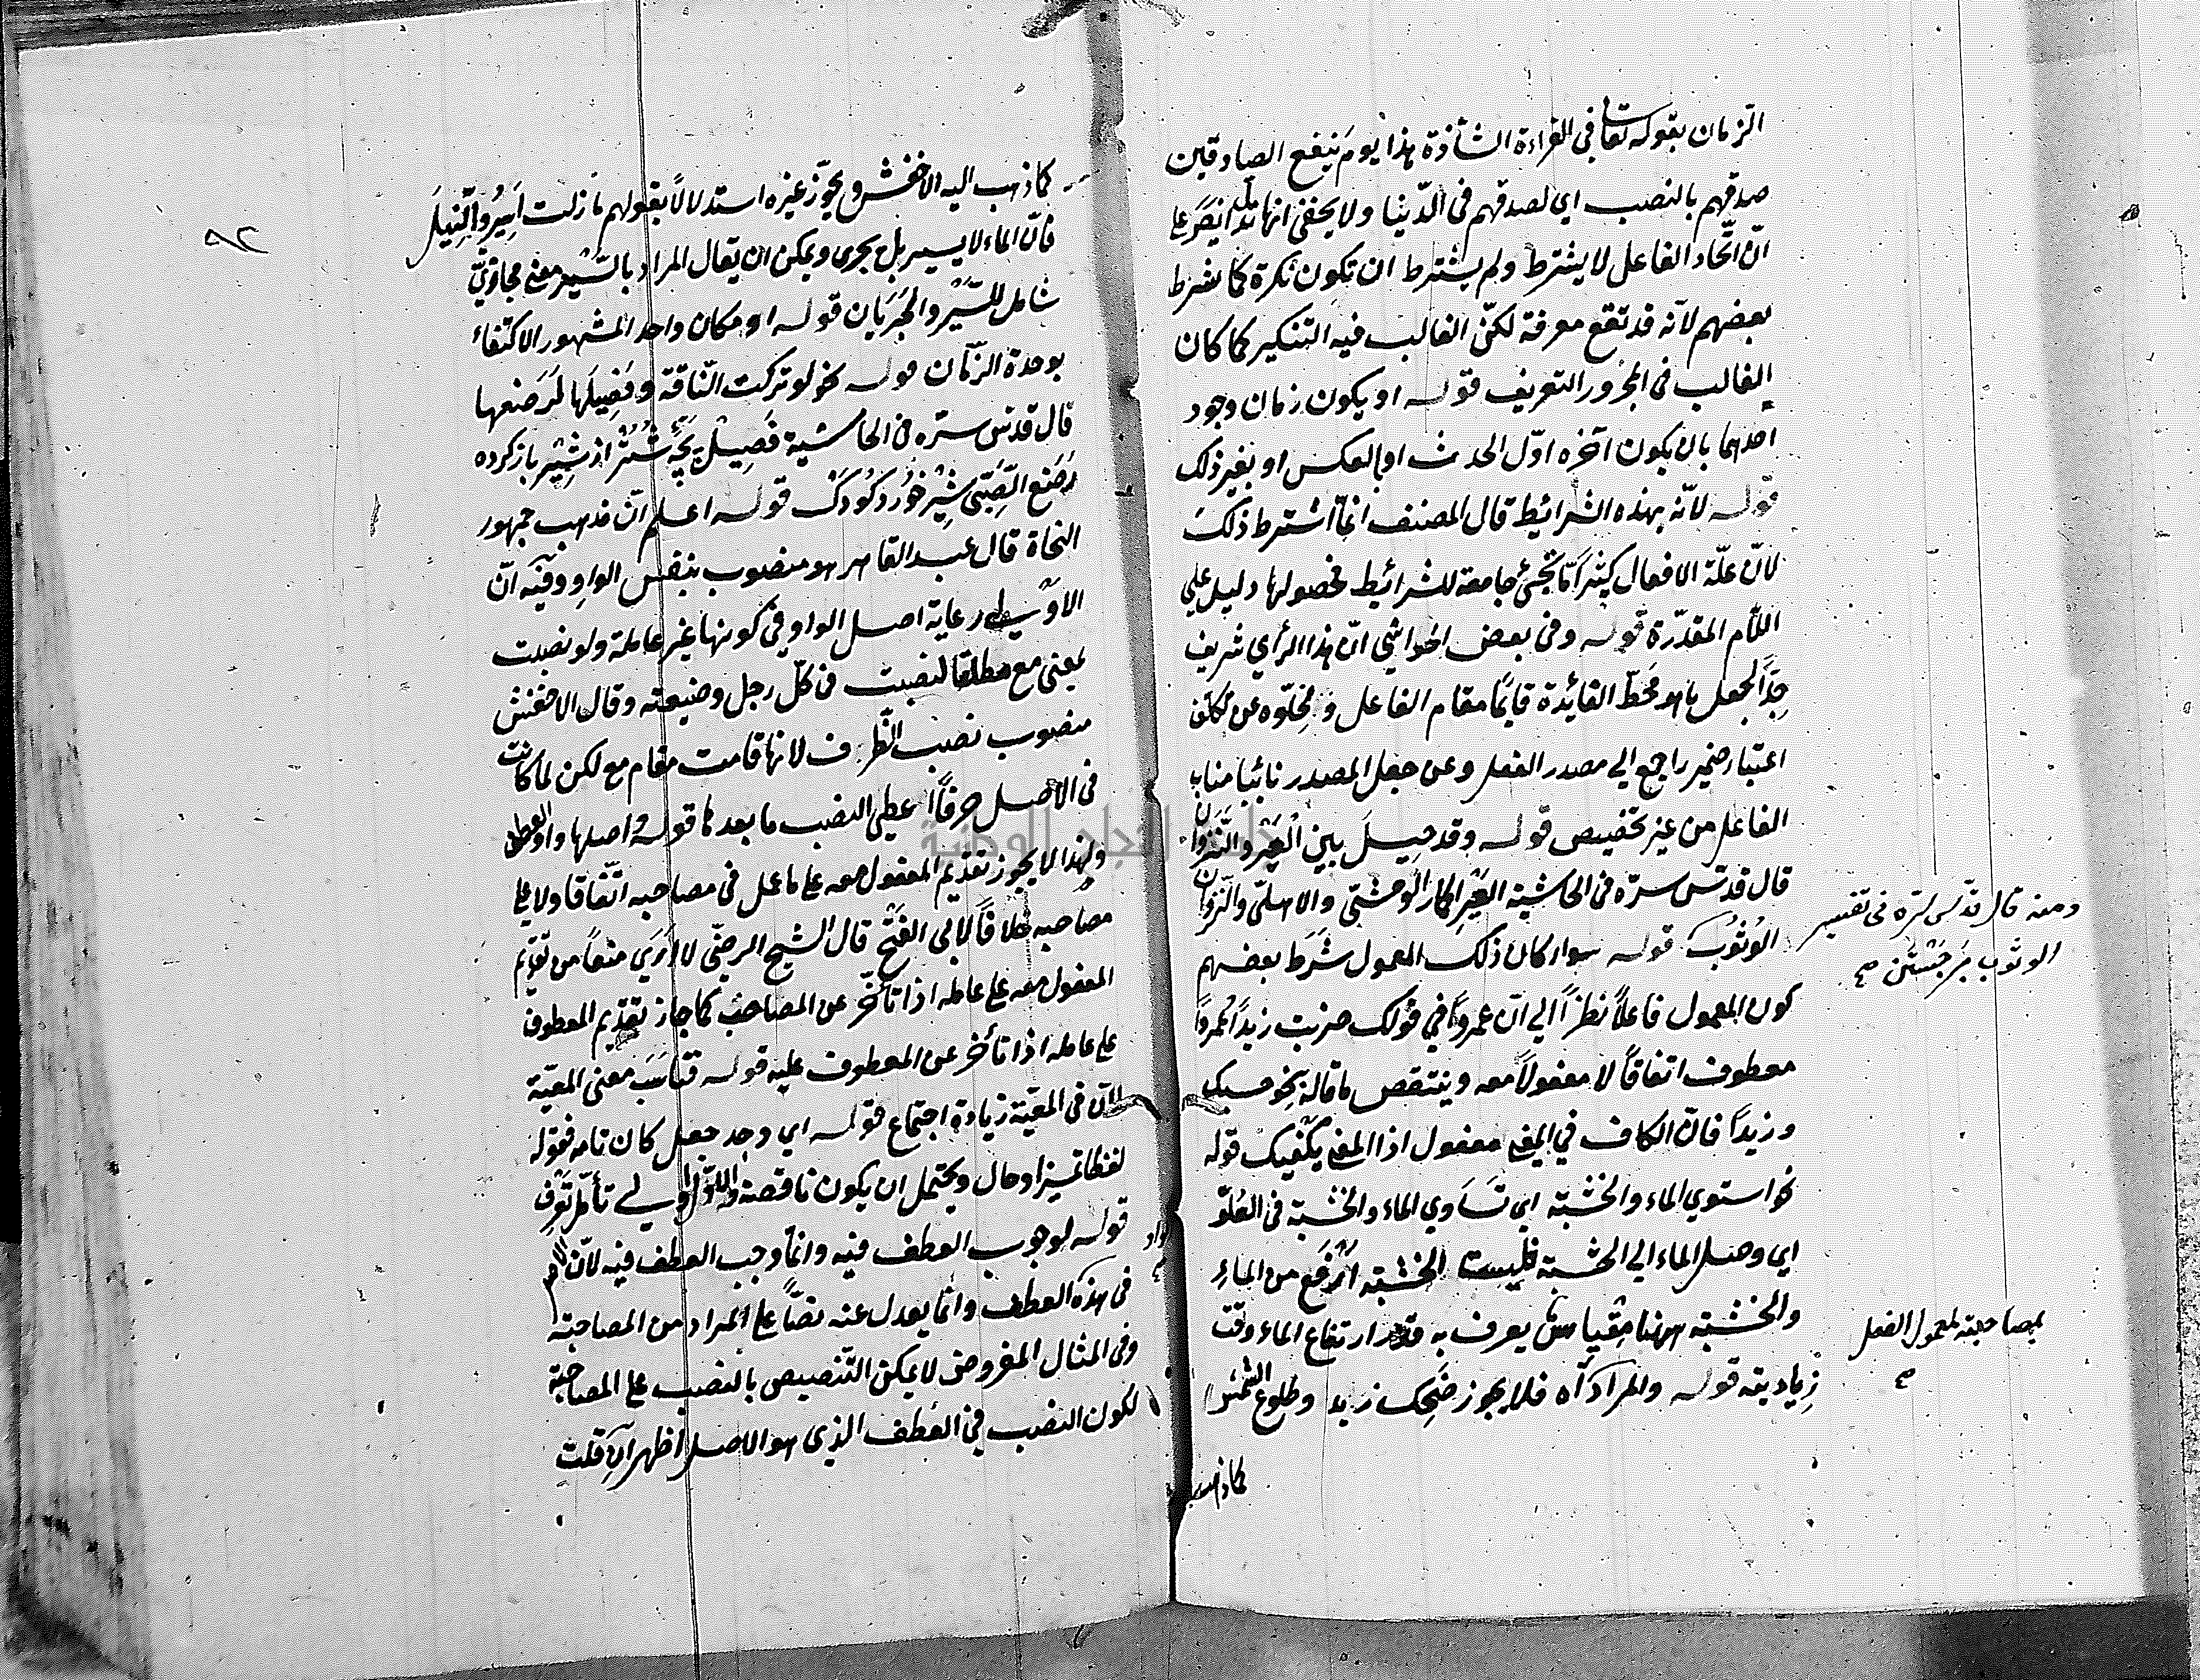 الزمان بقوله تعالى في القراءة الشاذة هذا يومَ ينفع الصادقين
صدقهم بالنصب اي لصدقهم في الدّنيا ولا يخفى انها تدلّ ايضًا على
انّ اتّحاد الفاعل لا يشترط ولم يشترط ان تكون نكرة كما شرط
بعضهم لانّه قد تقع معرفة لكنّ الغالب فيه التنكير كما كان
الغالب في المجرور التعريف قوله او يكون زمان وجود
احدهما بان يكون آخره اوّل الحدث او بالعكس او بغير ذلك
قوله لانّه بهذه الشرائيط قال المصنف انمّا اشترط ذلك
لانّ علّة الافعال كثيرًا مّا تجئ جامعة للشرائيط فحصولها دليل علي
اللّام المقدّرة قوله وفي بعض الحواشي انّ هذا الرأي شريف
جدّاً لجعل ما هو محَطّ الفائدة قايمًا مقام الفاعل ولخلوّه عن تكلّف
اعتبار ضمير راجع الي مصدر الفعل وعن جعل المصدر نائبا مناب
الفاعل من غير تخصيص قوله وقد حِيلَ بين العَيْر والنَّزَوان
قال قدّس سرّه في الحاشية العَيْر الحمار الوحشيّ والاهليّ والنّزوان
الوُثُوب قوله سواء كان ذلك المعمول شَرَط بعضهم
كون المعمول فاعلاً نظراً الي انّ عمروًا في قولك ضربت زيداً وعمرواً
معطوف اتفاقاً لا مفعولاً معه وينتقض ما قاله بنحو حسبك
وزيداً فانّ الكاف في المعنى مفعول اذ المعنى يكفيك قوله
نحو استوي الماء والخشبة اي تَسَاوي الماء والخشبة في العُلوّ
اي وصل الماء الي الخشبة فليست الخشبة اَرْفَع من الماءِ
والخشبة ههنا مِقْياسٌ يعرف به قدر ارتفاع الماء وقت
زِيادته قوله والمراد آه فلا يجوز ضَحِك زيد وطلوع الشمس
كما ذهب
ومنه قال قدّس سرّه في تفسير
الوثوب بَرجَسْتَن صح
بمصاحبته لمعمول الفعل
صح
٩٢
كما ذهب اليه الاخفش ويجوّز غيره استدلالاً بقولهم ما زلت اَسِيرُ والنّيلَ
فانّ الماء لا يسير بل يجري ويمكن ان يقال المراد بالسّير معنى مجازيّ
شامل للسَّيْر والجَرَيان قوله او مكان واحد المشهور الاكتفاء
بوحدة الزّمان قوله نحو لو تركت النّاقة وفَصِيلَها لَرَضعها
قال قدّس سرّه في الحاشية فَصِيلْ بچَّۀ شُتُر از شِيْر باز كرده
رَضَع الصَّبّي شِيْر خُوْرد كُودَك قوله اعلم انّ مذهب جمهور
النحاة قال عبد القاهر هو منصوب بنفس الواو وفيه انّ
الاَوْلى رعاية اصل الواو في كونها غير عاملة ولو نصبت
بمعني مع مطلقا لنصبت في كلّ رجل وضيعته وقال الاخفش
منصوب نصب الظّرف لانها قامت مقام مع لكن لمّا كانت
في الاصل حرفاً اعطي النصب ما بعدها قوله اصلها واو العطف
ولهذا لا يجوز تقديم المفعول معه علي ما عمل في مصاحبه اتّفاقا ولا علي
مصاحبه خلافاً لابي الفَتْح قال الشيخ الرضيّ لا اَرَي منعاً من تقديم
المفعول معه علي عامله اذا تأخّر عن المصاحَب كما جاز تقديم المعطوف
علي عامله اذا تأخر عن المعطوف عليه قوله فناسَبَ معني المعيّة
لانّ في المعيّة زيادة اجتماع قوله اي وجد جعل كان تامه فقوله
لفظا تميز او حال ويحتمل ان يكون ناقصة والاوّل اولي تأمّل تعرف
قوله لوجوب العطف فيه وانمّا وجب العطف فيه لانّ
في هذه العطف وانّما يعدل عنه نصّاً علي المراد من المصاحبة
وفي المثال المفروض لا يمكن التّنصيص بالنصب علي المصاحبة
لكون النصب في العطف الذي هو الاصل اظهر آن قلت